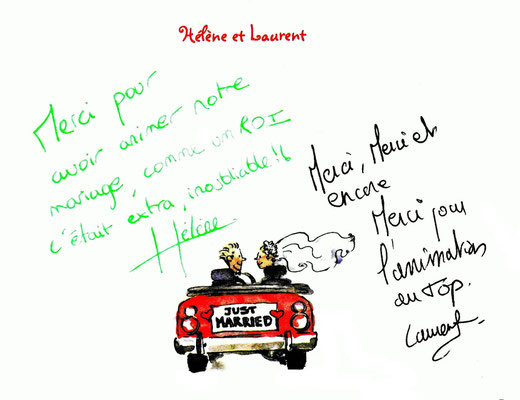 Hélène et Laurent
Merci pour
avoir animer notre
mariage, comme un ROI
c'était extra, inoubliable!!
Hélène
Merci, Merci et
encore
Merci pour
l'animation
au TOP.
Laurent
JUST
MARRIED